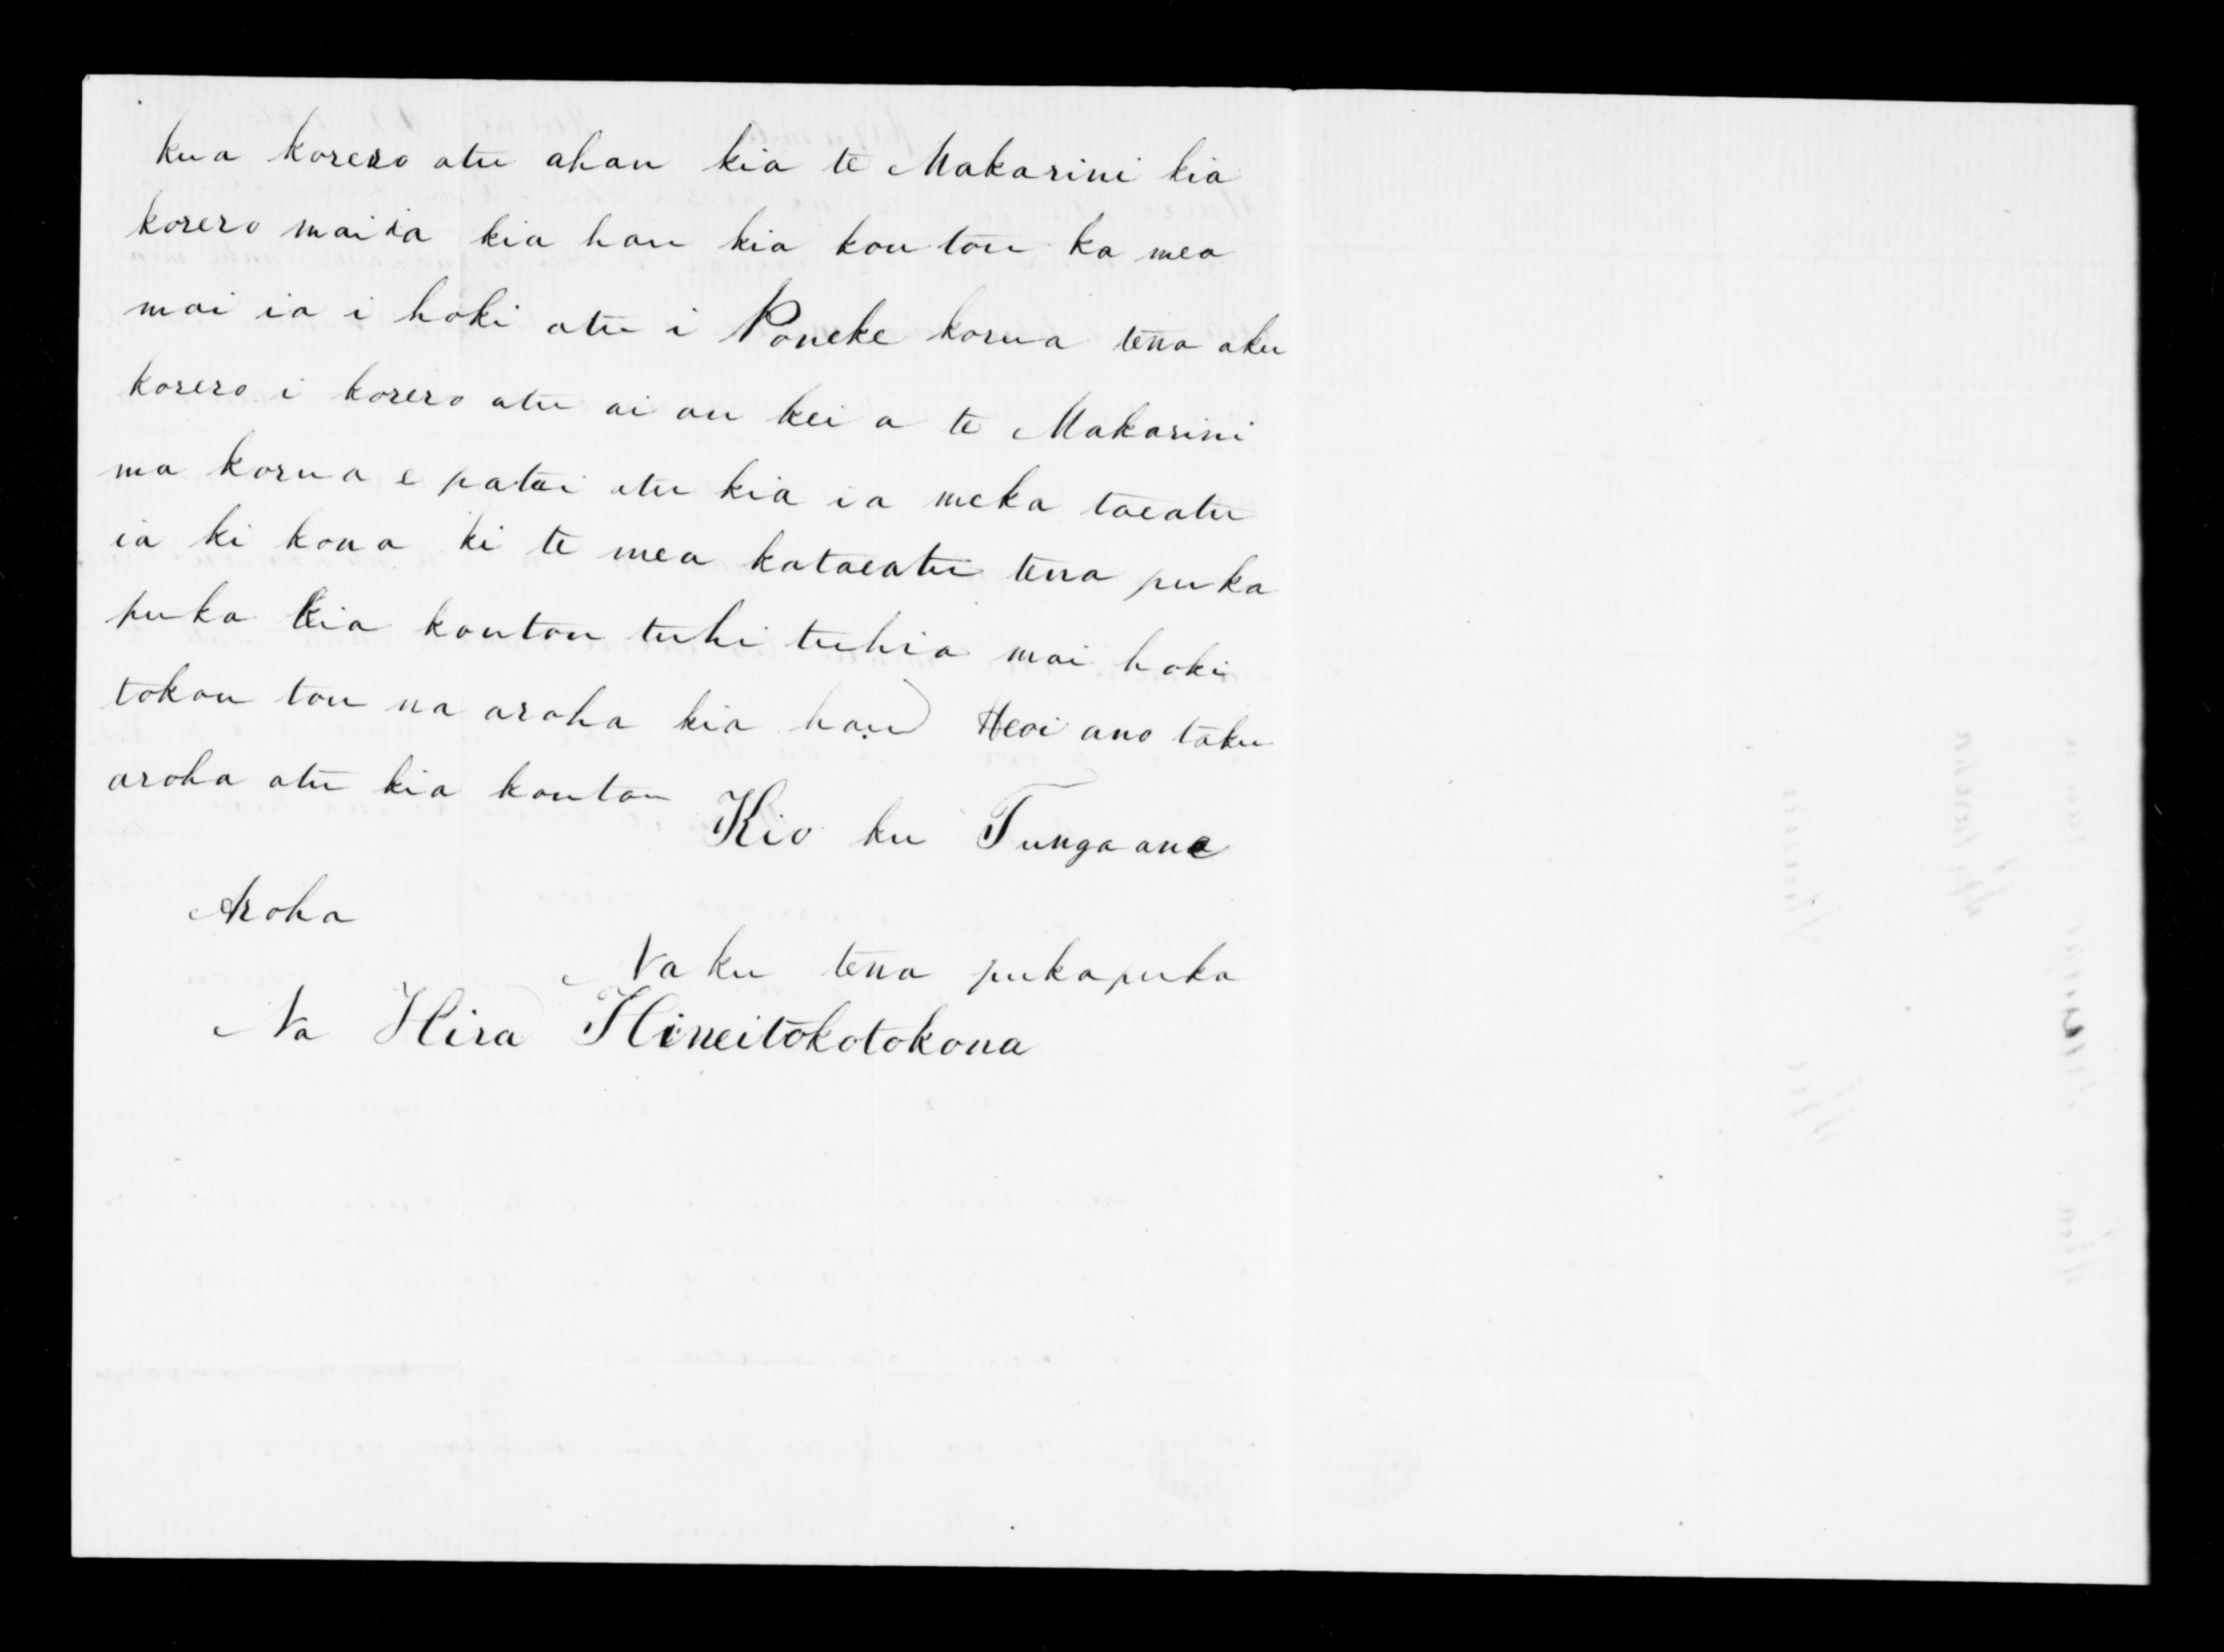 kua korero atu ahau kia te Makarini kia
korero mai ia kia hau kia kou tou ka mea
mai ia i hoki atu i Poneke korua tena aku
korero i korero atu ai au kei a te Makarini
ma korua e patai atu kia ia meka taeatu
ia ki kona ki te mea kataeatu tena puka
puka kia koutou tuhi tuhia mai hoki
tokou tou na aroha kia hau Heoi ano taku
aroha atu kia koutou
Kio ku Tungaane
Aroha
Naku tena pukapuka
Na Hira Hineitokotokona